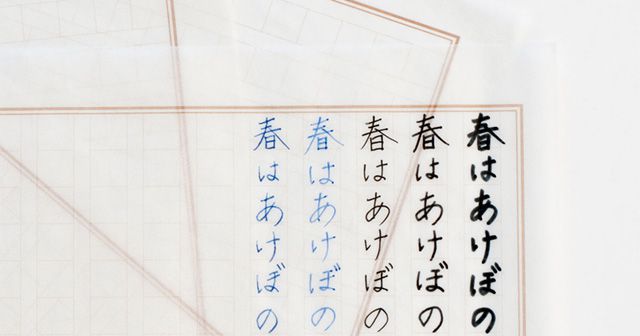 春はあけぼの
春はあけぼの
春はあけぼの
春はあけぼの
春はあけぼの